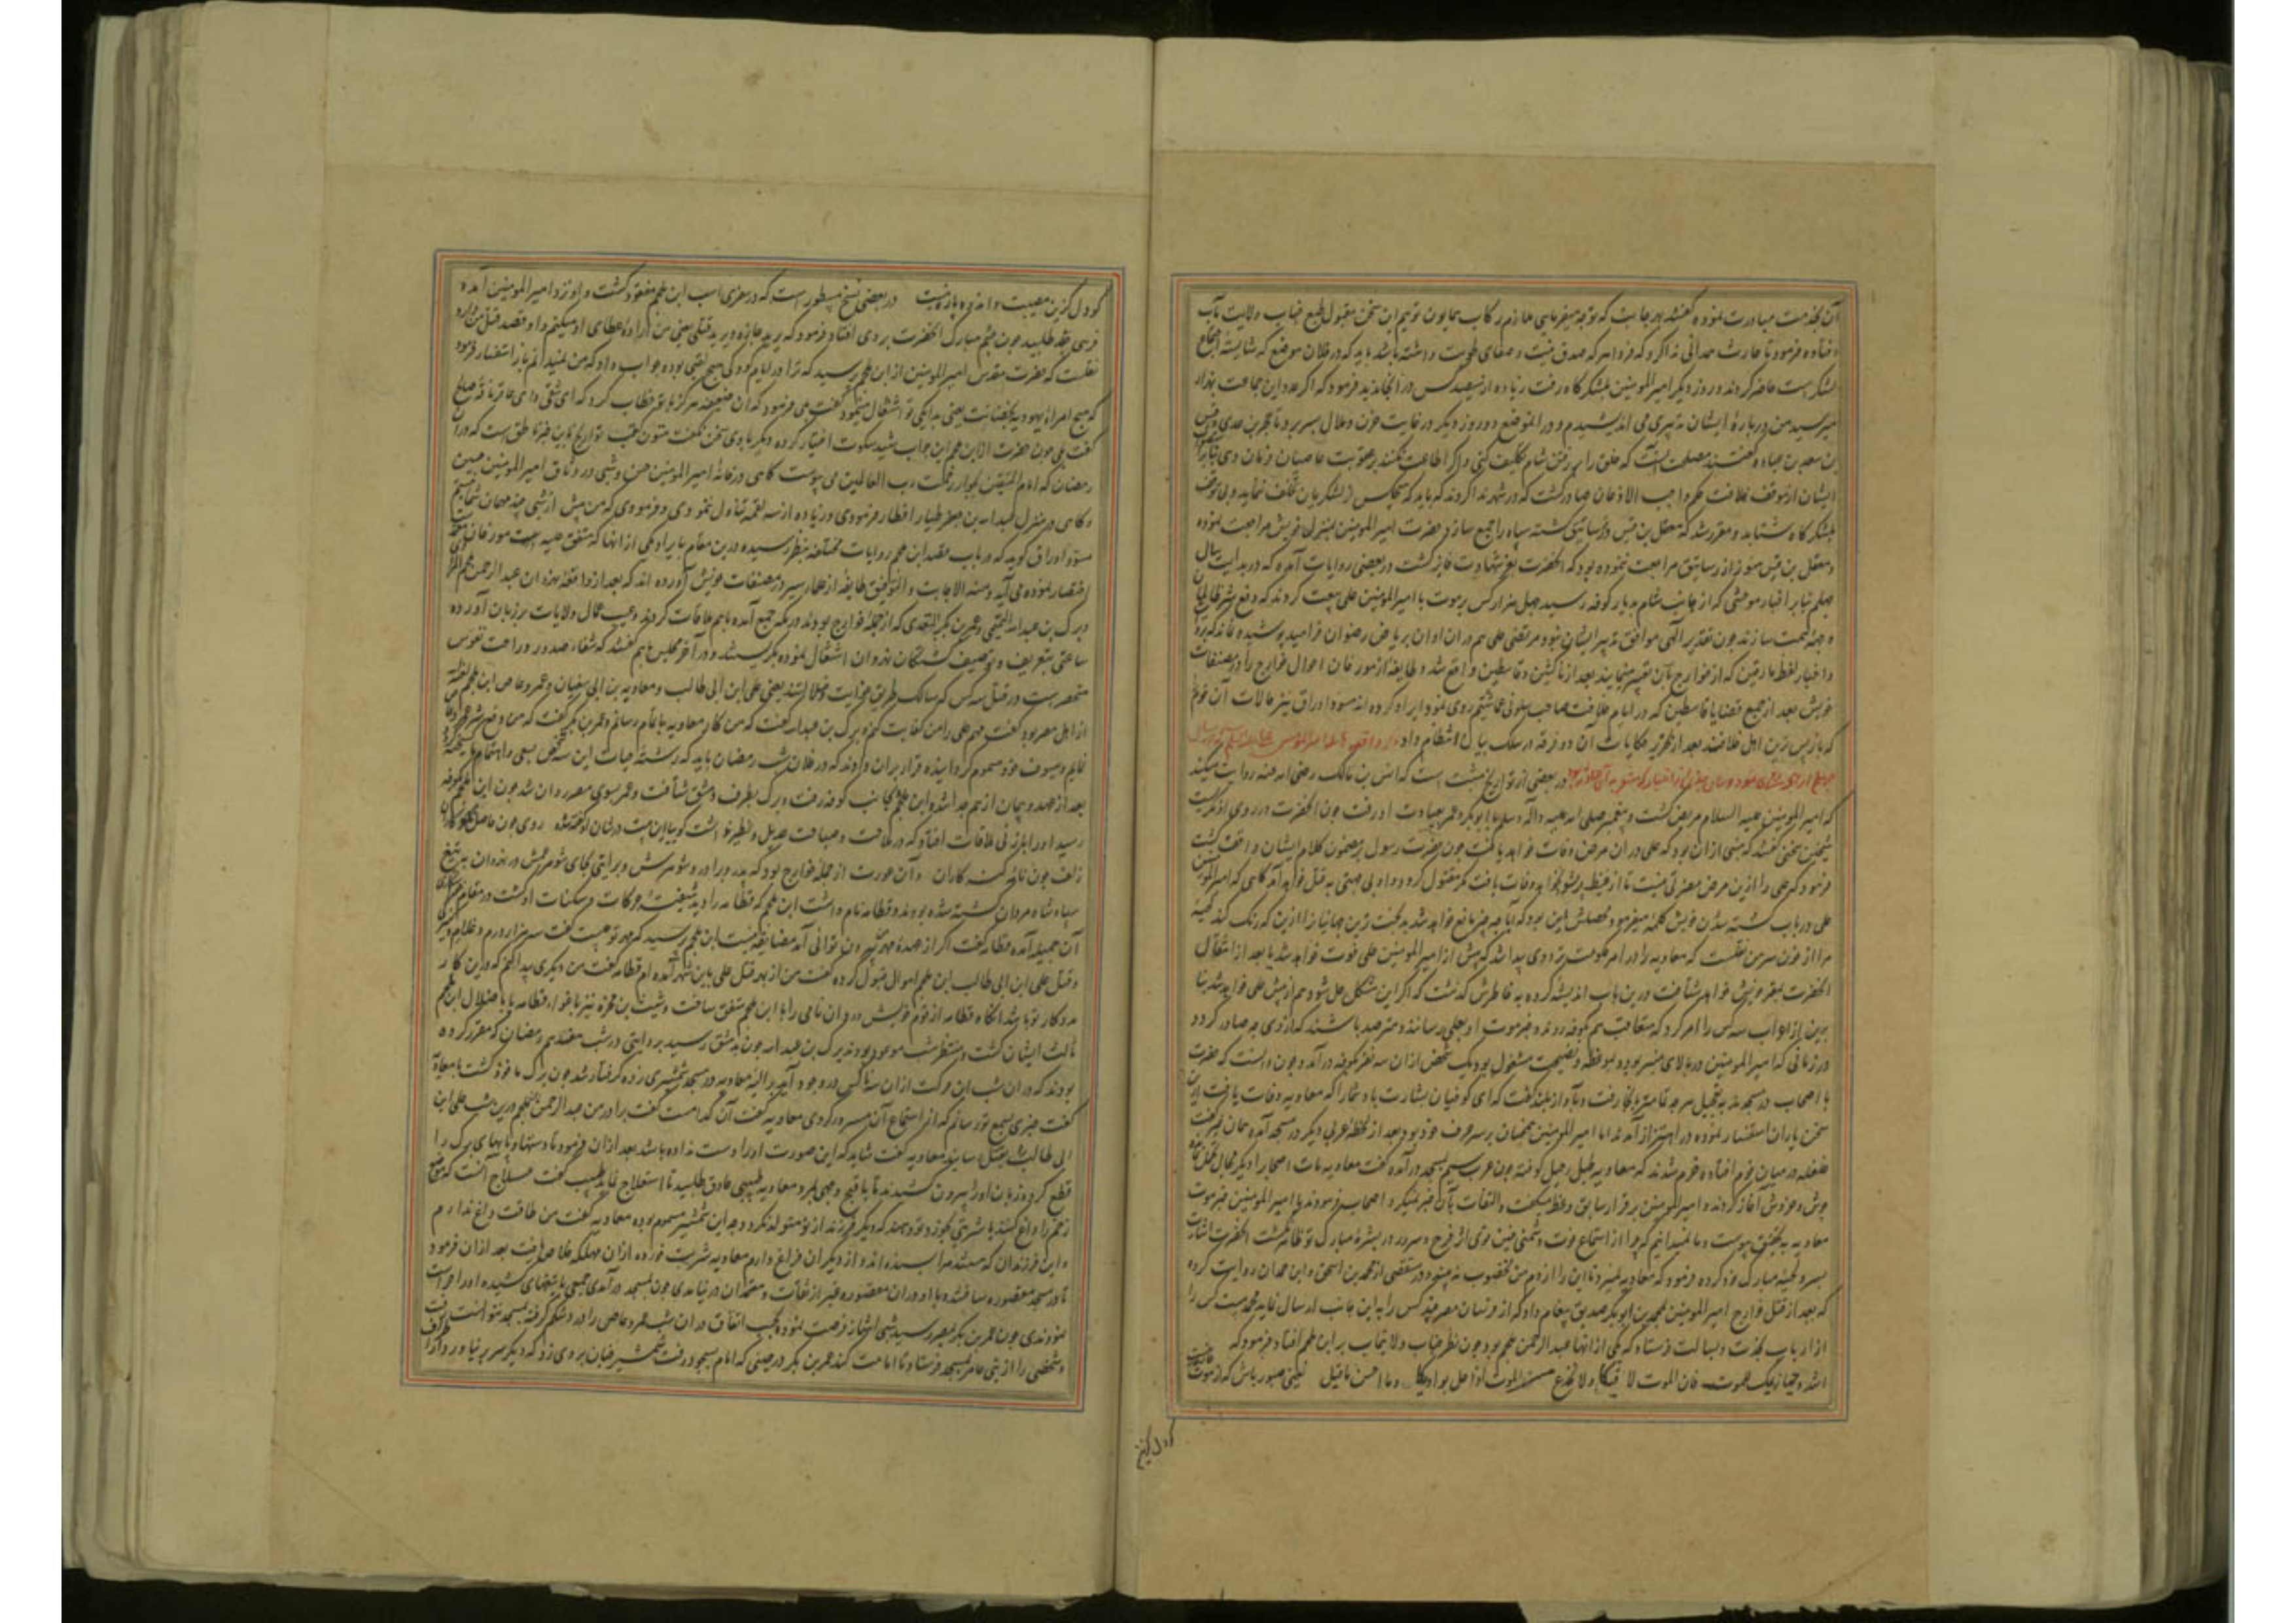 آن بخدمت مبادرت نموده گفتند بهر جانب که توجه میفرمایی ملازم رکاب همایون توییم این سخن مقبول طبع جناب ولایت مآب
افتاده فرمود تا حارث همدانی ندا کرد که فردا هر که صدق نیت و صفای طویت داشته باشد باید که در فلان موضع که شایسته اجتماع
لشکر است حاضر گردند و روز دیگر امیرالمومنین بلشکرگاه رفت زیاده از سیصد کس در آنجا ندید فرمود که اگر عدد این جماعت بهزار
میرسید من در باره ایشان تدبیری می اندیشیدم و در آن موضع دو روز دیگر در غایت حزن و ملال بسر برد تا حجر بن عدی و قیس
بن سعد بن عباده گفتند مصلحت آنست که خلق را برفتن شام تکلیف کنی و اگر اطاعت نکنند بعقوبت عاصیان فرمان دهی
ایشان از موقف خلافت حکم واجب الاذعان صادر گشت که در شهر ندا کردند که باید که هیچکس از لشکریان تخلف ننماید و بی توقف
بلشکرگاه شتابد و مقرر شد که معقل بن قیس در رساتیق گشته سپاه را جمع سازد و حضرت امیرالمومنین بمنزل خویش مراجعت نموده
و معقل بن قیس هنوز از رساتیق مراجعت ننموده بود که آنحضرت بعز شهادت فایز گشت در بعضی روایات آمده که در بدایت سال
چهلم بنابر اخبار موحشی که از جانب شام بدیار کوفه رسید چهل هزار کس بر موت با امیرالمومنین علی بیعت کردند که دفع شر ظالمان
وجهه همت سازند چون تقدیر الهی موافق تدبیر ایشان نبود مرتضی علی هم در آن اوان بریاض رضوان خرامید پوشیده نماند که
و اخبار لفظ مارقین که از خوارج بآن تعبیر مینمایند بعد از ناکثین و قاسطین واقع شد و طایفه از مورخان احوال خوارج را در مصنفات
خویش بعد از جمیع قضایا قاسطین که در ایام خلافت صاحب سلونی عما شئتم روی نمود ایراد کرده اند مسود اوراق نیز حالات آن قوم
که بازپس ترین اهل خلافند بعد از تحریر حکایات آن دو فرقه در سلک بیان انتظام داد
در بعضی از تواریخ مثبت است که انس بن مالک رضی الله عنه روایت میکند
که امیرالمومنین علیه السلام مریض گشت و پیغمبر صلی الله علیه وآله وسلم با ابوبکر و عمر بعیادت او رفت چون آنحضرت در روی او نگریست
شیخین سخنی گفتند که مبنی از آن بود که علی در آن مرض وفات خواهد یافت چون حضرت رسول بر مضمون کلام ایشان واقف گشت
فرمود که علی را ازین مرض مضرتی نیست تا از غیظ پر نشود نخواهد وفات یافت مگر مقتول گردد و او بی جهتی بقتل خواهد آمد گاهی که امیرالمومنین
علی در باب کشته شدن خویش کلمه میفرمود محصلش این بود که آیا چه چیز مانع خواهد شد بدبخت ترین جهانیان را ازین که رنگ کند لحیه
مرا از خون سر من نقلست که معاویه را در امر حکومت ترددی پیدا شد که پیش از امیرالمومنین علی فوت خواهد شد یا بعد از انتقال
آنحضرت بمقر خویش خواهد شتافت و درین باب اندیشه کرده بخاطرش گذشت که اگر این مشکل حل شود هم از پیش علی خواهد شد بنا
برین از اعراب سه کس را امر کرد که متعاقب هم بکوفه روند و خبر موت او بعلی رسانند و مترصد باشند که از وی چه صادر گردد
در زمانی که امیرالمومنین در بالای منبر بود و بموعظه و نصیحت مشغول بود یک شخص از آن سه نفر بکوفه درآمد و چون دانست که حضرت
با اصحاب در مسجدند بتعجیل هر چه تمامتر بدانجا رفت و بآواز بلند گفت که ای کوفیان بشارت باد شما را که معاویه وفات یافت ازین
سخن یاران استفسار نموده در اهتزاز آمدند اما امیرالمومنین همچنان بر سر حرف خود بود بعد از لحظه عربی دیگر در مسجد آمده همان خبر گفت
غلغله در میان قوم افتاده خرم شدند که معاویه طبل رحیل کوفته چون عرب سیم بمسجد درآمده گفت معاویه مات اصحاب را دیگر مجال تحمل نمانده
جوش و خروش آغاز کردند و امیرالمومنین بر قرار سابق وعظ میگفت و التفات بآن خبر نمیکرد اصحاب فرمودند یا امیرالمومنین خبر موت
معاویه بتحقیق پیوست و ما نمیدانیم که چرا از استماع فوت دشمنی چنین قوی اثر فرح و سرور در بشره مبارک تو ظاهر نگشت آنحضرت اشارت
بسر و لحیه مبارک خود کرده فرمود که معاویه نمیرد تا این را از دم من مخضوب نه بیند و در مستقصی از محمد بن اسحق و ابن حمدان روایت کرده
که بعد از قتل خوارج امیرالمومنین بمحمد بن ابوبکر صدیق پیغام داد که از فرسان مصر چند کس را به این جانب ارسال نماید محمد بیست کس را
از ارباب نجدت و بسالت فرستاد که یکی از آنها عبدالرحمن ملجم بود چون نظر جناب ولایتمآب بر ابن ملجم افتاد فرمود که
اشدد حیازیمک للموت فان الموت لاقیکا ولا تجزع من الموت اذا حل بوادیکا وما احسن ما قیل یعنی صبور باش که از موت
گو دل گزین
گو دل گزین مصیبت و اندوه باز نیست در بعضی نسخ مسطور است که در سفری اسب ابن ملجم مفقود گشت و او نزد امیرالمومنین آمده
فرسی طلبید چون چشم مبارک آنحضرت بر وی افتاد فرمود که ارید حیاته و یرید قتلی یعنی من اراده عطای او میکنم و او قصد قتل من دارد
نقلست که حضرت مقدس امیرالمومنین از ابن ملجم پرسید که ترا در ایام کودکی هیچ لقبی بوده جواب داد که من نمیدانم باز استفسار فرمود
که هیچ امراة یهودیه بحضانت یعنی بدایگی تو اشتغال مینمود گفت بلی فرمود که آن ضعیفه هرگز با تو خطاب کرد که ای شقی و ای عاقر ناقه صالح
گفت بلی چون حضرت از ابن ملجم این جواب شنید سکوت اختیار کرده دیگر با وی سخن نگفت متون کتب تواریخ باین خبر ناطق است که در آن
رمضان که امام المتقین بجوار رحمت رب العالمین می پیوست گاهی در خانه امیرالمومنین حسن و شبی در وثاق امیرالمومنین حسین
و گاهی در منزل عبدالله بن جعفر طیار افطار فرمودی و زیاده از سه لقمه تناول ننمودی و فرمودی که من بیش از شبی چند مهمان شما نیستم
مسود اوراق گوید که در باب مقصد ابن ملجم روایات مختلفه بنظر رسیده و درین مقام بایراد یکی از آنها که متفق علیه است
اختصار نموده می آید ومنه الاجابت والتوفیق طایفه از علماء سیر در مصنفات خویش آورده اند که بعد از واقعه نهروان عبدالرحمن ملجم
و برک بن عبدالله التمیمی و عمرو بن بکر السعدی که از جمله خوارج بودند در مکه جمع آمده باهم ملاقات کردند و عیب عمال ولایات بر زبان آورده
ساعتی بتعریف و توصیف کشتگان نهروان اشتغال نموده بگریستند و در آخر مجلس باهم گفتند که شفاء صدور و راحت نفوس
منحصر است در قتل سه کس که سالک طریق غوایت و ضلالتند یعنی علی ابن ابی طالب و معاویه بن ابی سفیان و عمرو عاص ابن ملجم
از اهل مصر بود گفت مهم علی را من کفایت کنم و برک بن عبدالله گفت که من کار معاویه باتمام رسانم و عمرو بن بکر گفت که من دفع شر عمرو عاص
نمایم و سیوف خود مسموم گردانیده قرار بران دادند که در فلان شب رمضان باید که رشته حیات این سه شخص بسعی و اهتمام
بعد از عهد و پیمان از هم جدا شده ابن ملجم بجانب کوفه رفت و برک بطرف دمشق شتافت و عمرو بسوی مصر روان شد چون ابن ملجم بکوفه
رسید او را با زنی ملاقات افتاد که در ملاحت و صباحت عدیل و نظیر نداشت گوییا این بیت در شان او گفته شده روی چون حاصل نکوکاران
زلف چون نامه گنه کاران و آن عورت از جمله خوارج بود که پدر و برادر و شوهرش و بروایتی بجای شوهر عمش در نهروان بتیغ
سپاه شاه مردان کشته شده بودند و قطامه نام داشت ابن ملجم که قطامه را دید شیفته حرکات و سکنات او گشت و در مقام
آن جمیله آمده قطامه گفت اگر از عهده مهر من بیرون توانی آمد مضایقه نیست ابن ملجم پرسید که مهر تو چیست گفت سه هزار درم و غلام و کنیز
و قتل علی ابن ابی طالب ابن ملجم اموال قبول کرده گفت من از بهر قتل علی باین شهر آمده ام قطامه گفت من دیگری پیدا کنم که درین کار
مددکار تو باشد آنگاه قطامه از قوم خویش وردان نامی را با ابن ملجم متفق ساخت و شبیب بن بجره نیز باغواء قطامه یا باضلال ابن ملجم
ثالث ایشان گشت و منتظر شب موعود بودند برک بن عبدالله چون بدمشق رسید بروایتی در شب هفدهم رمضان که مقرر کرده
بودند که در آن شب این حرکت از آن سه ناکس در وجود آید بر الیه معاویه در مسجد شمشیری زده گرفتار شد چون برک ماخوذ گشت با معاویه
گفت خبری بسمع تو رسانم که از استماع آن مسرور گردی معاویه گفت آن کدامست گفت برادر من عبدالرحمن ملجم درین شب علی ابن
ابی طالب را بقتل رسانید معاویه گفت شاید که این صورت او را دست نداده باشد بعد از آن فرمود تا دستها و پایهای برک را
قطع کردند و زبان او را بیرون کشیدند تا باقبح وجهی بمرد و معاویه طبیبی حاذق طلبید تا استعلاج نماید طبیب گفت علاج آنست که موضع
زخم را داغ کنند یا شربتی بخورد تو دهند که دیگر فرزند از تو متولد نگردد چه این شمشیر مسموم بوده معاویه گفت من طاقت داغ ندارم
و این فرزندان که هستند مرا بسنده اند و از دیگران فراغ دارم معاویه شربت خورده از آن مهلکه خلاص یافت بعد از آن فرمود
تا در مسجد مقصوره ساختند و با او در آن مقصوره غیر از ثقات و معتمدان در نیامدی چون بمسجد درآمدی جمعی با تیغهای کشیده او را حراست
نمودندی چون عمرو بن بکر بمصر رسید شبی انتهاز فرصت نموده بحسب اتفاق در آن شب عمرو عاص را درد شکم گرفته بمسجد نتوانست رفت
و شخصی را از بنی عامر بمسجد فرستاد تا امامت کند عمرو بن بکر در حینی که امام بسجود رفت شمشیر چنان بر وی زد که دیگر سر بر نیاورد و او را